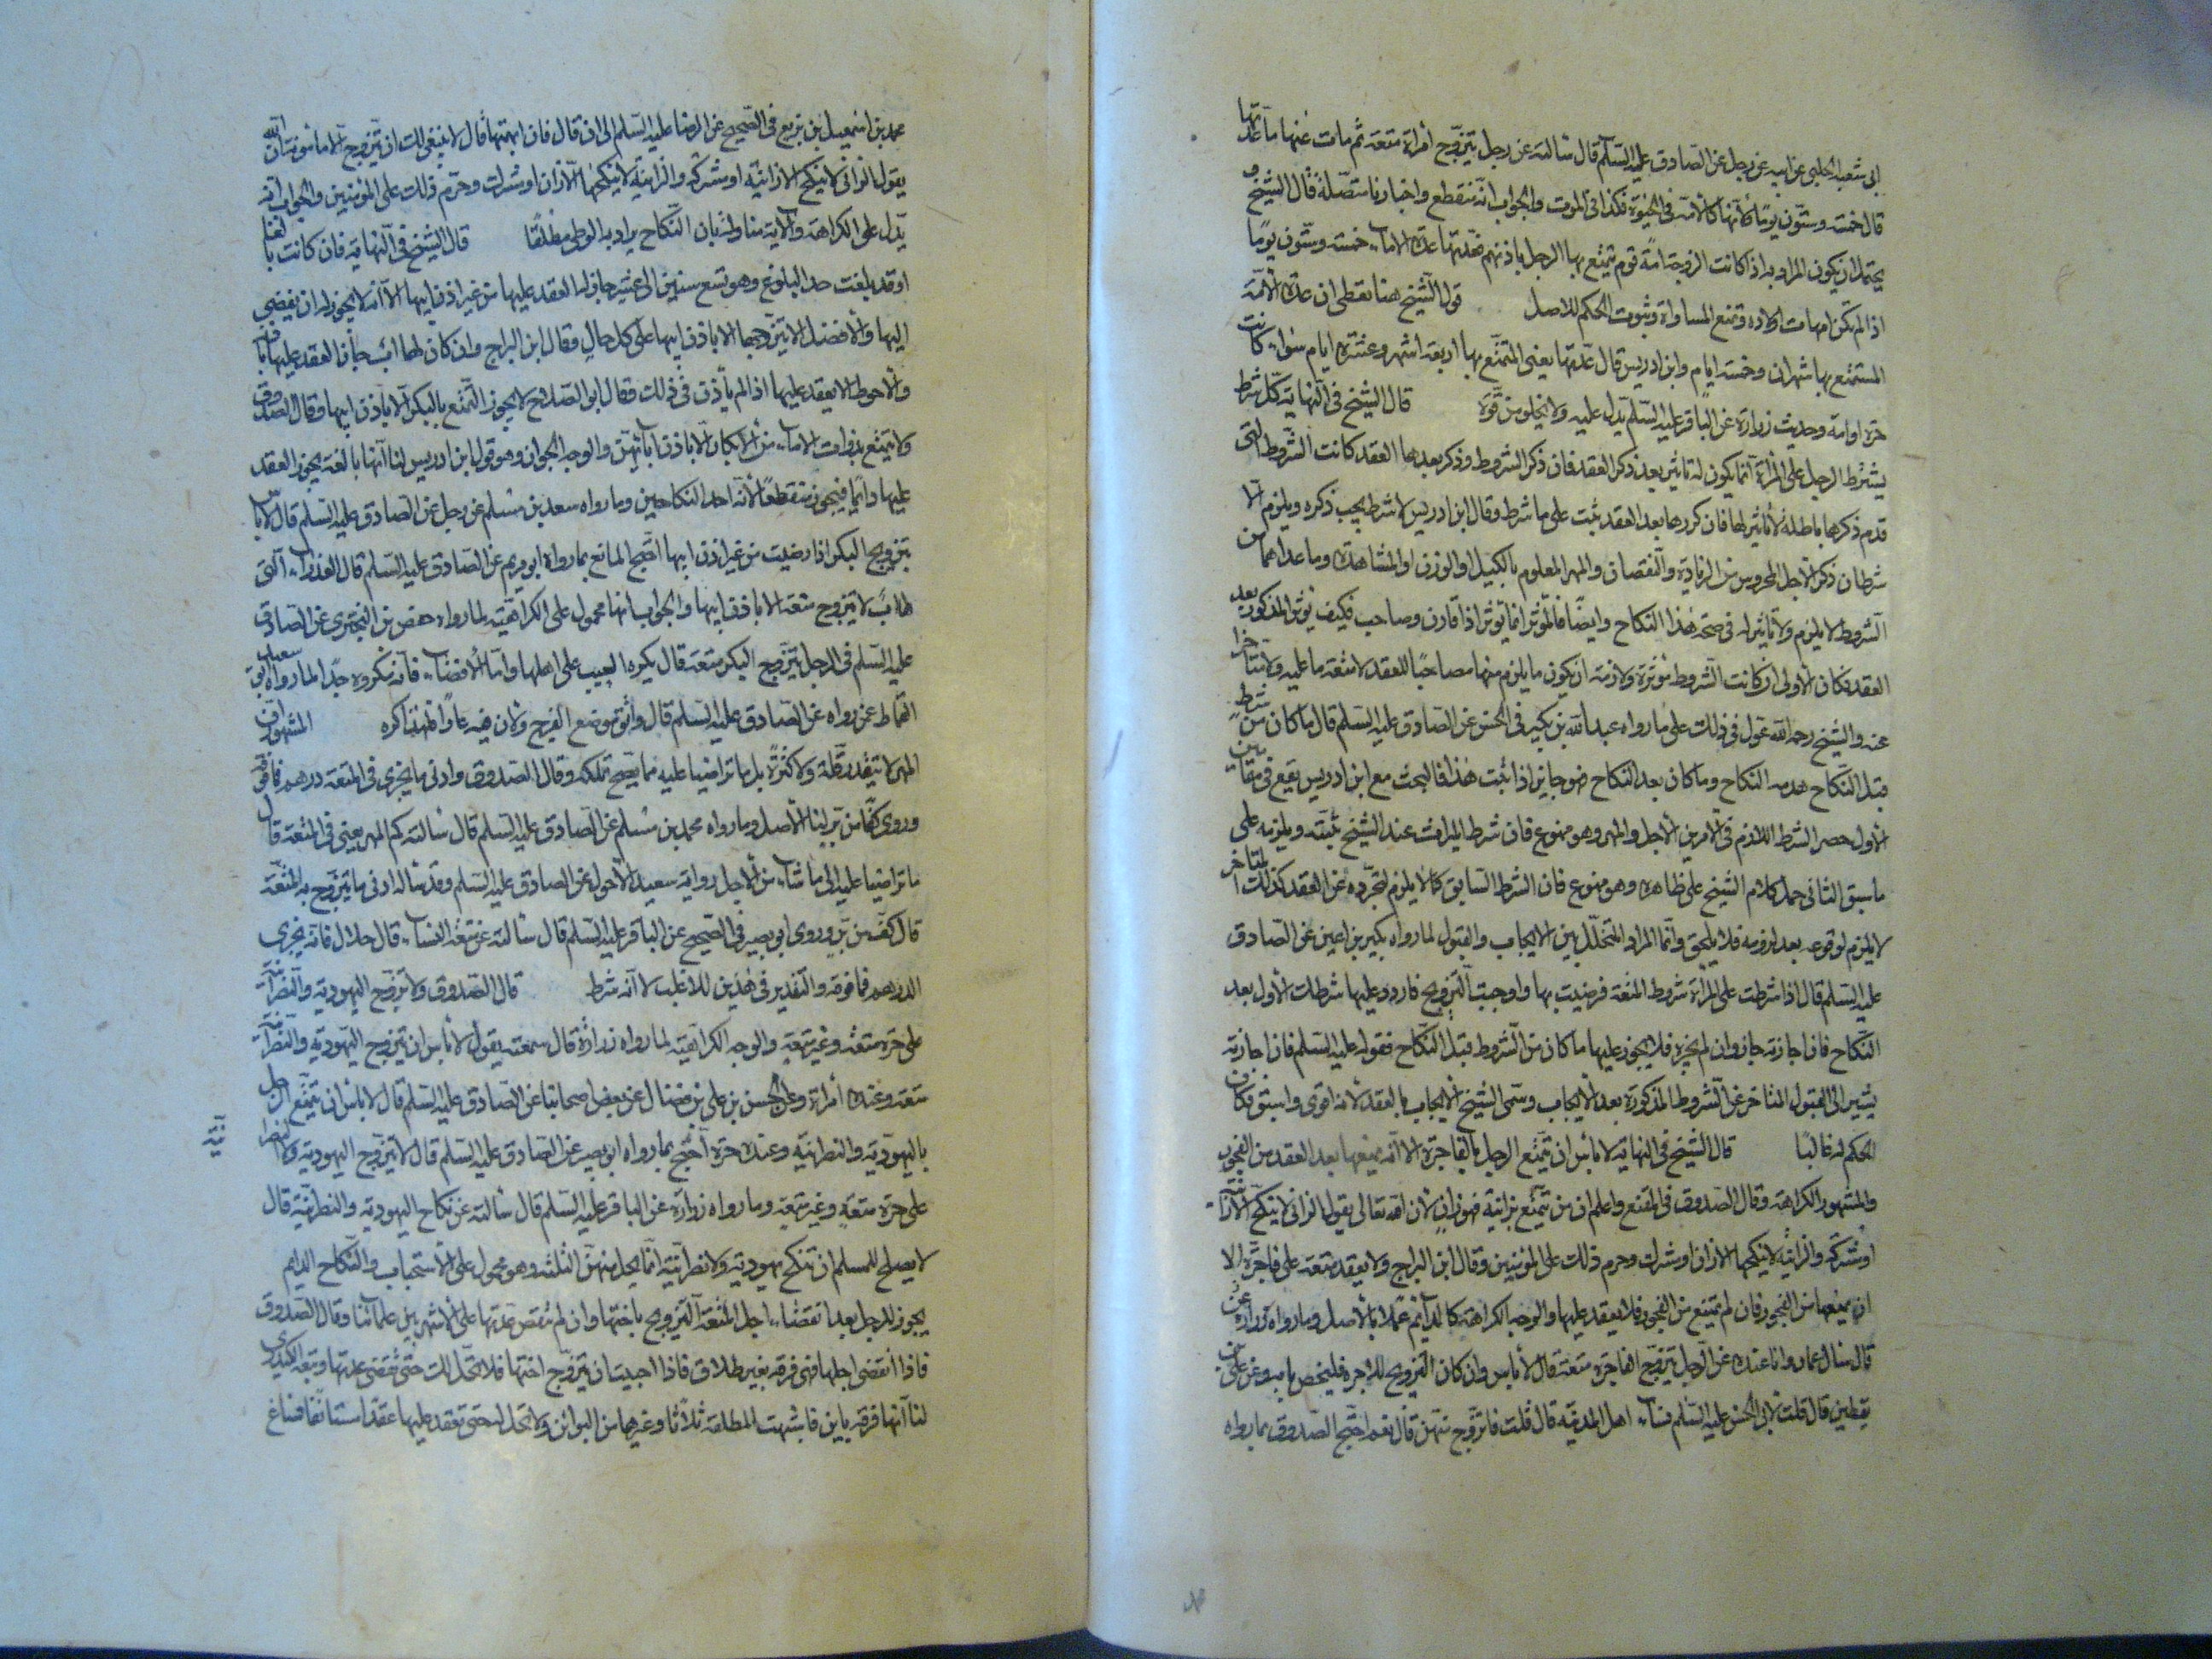 ابى شعبه الحلبى عن ابيه عن رجل عن الصادق عليه السلم قال سالته عن رجل يتزوج امراة متعة ثم مات عنها ما عدتها
قال خمسة وستون يوما لانها كالامة فى الحيوة فكذا فى الموت والجواب انه منقطع واخبارنا متصلة قال الشيخ
يحتمل ان يكون المراد به اذا كانت الزوجة امة قوم تمتع بها الرجل باذنهم فعدتها عدة الاماء خمسة وستون يوما
اذا لم تكن امهات اولاده وتمنع المساواة وثبوت الحكم للاصل قول الشيخ هنا يعطى ان عدة الامة
المستمتع بها شهران وخمسة ايام وابن ادريس قال عدتها يعنى المتمتع بها اربعة اشهر وعشرة ايام سواء كانت
حرة او امة وحديث زرارة عن الباقر عليه السلم يدل عليه ولا يخلو من قوة قال الشيخ فى النهاية كل شرط
يشترط الرجل على المراة انما يكون له تاثير بعد ذكر العقد فان ذكر الشروط وذكر بعدها العقد كانت الشروط التى
قدم ذكرها باطلة لا تاثير لها فان كررها بعد العقد ثبت على ما شرط وقال ابن ادريس لا شرط يجب ذكره ويلزم الا
شرطان ذكر الاجل المحروس من الزيادة والنقصان والمهر المعلوم بالكيل او الوزن او المشاهدة وما عداهما من
الشروط لا يلزم ولا تاثير له فى صحة هذا النكاح وايضا فالمؤثر انما يؤثر اذا قارن وصاحب فكيف يؤثر المذكور بعد
العقد فكان الاولى ان كانت الشروط مؤثرة ولازمة ان يكون ما يلزم منها مصاحبا للعقد لا متقدما عليه ولا متاخرا
عنه والشيخ رحمه الله عول فى ذلك على ما رواه عبد الله بن بكير فى الحسن عن الصادق عليه السلم قال ما كان من شرط
قبل النكاح هدمه النكاح وما كان بعد النكاح فهو جايز اذا ثبت هذا فالبحث مع ابن ادريس يقع فى مقامين
الاول حصر الشرط اللازم فى الامرين الاجل والمهر وهو ممنوع فان شرط الميراث عند الشيخ يثبته ويلزمه على
ما سبق الثانى حمل كلام الشيخ على ظاهره وهو ممنوع فان الشرط السابق كما لا يلزم لتجرده عن العقد كذلك المتاخر
لا يلزم لوقوعه بعد لزومه فلا يلحق وانما المراد المتخلل بين الايجاب والقبول لما رواه بكير بن اعين عن الصادق
عليه السلم قال اذا شرطت على المراة شروط المتعة فرضيت بها واوجبت التزويج فاردد عليها شرطك الاول بعد
النكاح فان اجازته جاز وان لم تجزه فلا يجوز عليها ما كان من الشروط قبل النكاح فقوله عليه السلم فان اجازته
يشير الى القبول المتاخر عن الشروط المذكورة بعد الايجاب وسمى الشيخ الايجاب بالعقد لانه اقوى واسبق فكان
الحكم له غالبا قال الشيخ فى النهاية لا باس ان يتمتع الرجل بالفاجرة الا انه يمنعها بعد العقد من الفجور
والمشهور الكراهة وقال الصدوق فى المقنع واعلم ان من تمتع بزانية فهو زان لان الله تعالى يقول الزانى لا ينكح الا زانية
او مشركة والزانية لا ينكحها الا زان او مشرك وحرم ذلك على المؤمنين وقال ابن البراج ولا يعقد متعة على فاجرة الا
ان يمنعها من الفجور فان لم تمتنع من الفجور فلا يعقد عليها والوجه الكراهة كالدايم عملا بالاصل وما رواه زرارة عن
قال سال عمار وانا عنده عن الرجل يتزوج الفاجرة متعة قال لا باس وان كان التزويج للاخر فليحصن بابه وعن على بن
يقطين قال قلت لابى الحسن عليه السلم نساء اهل المدينة قال قلت فاتزوج منهن قال نعم احتج الصدوق بما رواه
محمد بن اسمعيل بن بزيع فى الصحيح عن الرضا عليه السلم الى ان قال فان اتهمتها قال لا ينبغى لك ان تتزوج الا مامونة ان الله
يقول الزانى لا ينكح الا زانية او مشركة والزانية لا ينكحها الا زان او مشرك وحرم ذلك على المؤمنين والجواب انه
يدل على الكراهة والاية متاولة بان النكاح يراد به الوطى مطلقا قال الشيخ فى النهاية فان كانت بالغة
او قد بلغت حد البلوغ وهو تسع سنين الى عشر جاز له العقد عليها من غير اذن ابيها الا انه لا يجوز له ان يفضى
اليها والافضل الا يتزوجها الا باذن ابيها على كل حال وقال ابن البراج وان كان لها اب جاز العقد عليها
والاحوط الا يعقد عليها اذا لم ياذن فى ذلك وقال ابو الصلاح لا يجوز التمتع بالبكر الا باذن ابيها وقال الصدوق
ولا يتمتع بذوات الاباء من الابكار الا باذن ابائهن والوجه الجواز وهو قول ابن ادريس لنا انها بالغة يجوز العقد
عليها دائما فيجوز منقطعا لانه احد النكاحين وما رواه سعد بن مسلم عن رجل عن الصادق عليه السلم قال لا باس
بتزويج البكر اذا رضيت من غير اذن ابيها احتج المانع بما رواه ابو مريم عن الصادق عليه السلم قال العذراء التى
لها اب لا تتزوج متعة الا باذن ابيها والجواب انها محمول على الكراهية لما رواه حفص بن البخترى عن الصادق
عليه السلم فى الرجل يتزوج البكر متعة قال يكره للعيب على اهلها واما الافضاء فانه مكروه جدا لما رواه ابو سعيد
القماط عمن رواه عن الصادق عليه السلم قال واتق موضع الفرج ولان فيه عارا فلهذا كره المشهور ان
المهر لا يتقدر قلة ولا كثرة بل ما تراضيا عليه مما يصح تملكه وقال الصدوق وادنى ما يجزى فى المتعة درهم فما فوقه
وروى كفا من بر لنا الاصل وما رواه محمد بن مسلم عن الصادق عليه السلم قال سالته كم المهر يعنى فى المتعة قال
ما تراضيا عليه الى ما شاء من الاجل رواية سعيد الاحول عن الصادق عليه السلم وقد ساله ادنى ما يتزوج به المتعة
قال كف من بر وروى ابى بصير فى الصحيح عن الباقر عليه السلم قال سالته عن متعة النساء قال حلال فانه يجزى
الدرهم فما فوقه والتقدير فى هذين للاغلب لا انه شرط قال الصدوق ولا تتزوج اليهودية والنصرانية
على حرة متعة وغير متعة والوجه الكراهية لما رواه زرارة قال سمعته يقول لا باس ان يتزوج اليهودية والنصرانية
متعة وعنده امراة وعن الحسن بن على بن فضال عن بعض اصحابنا عن الصادق عليه السلم قال لا باس ان يتمتع الرجل
باليهودية والنصرانية وعنده حرة احتج بما رواه ابو بصير عن الصادق عليه السلم قال لا يتزوج اليهودية ولا النصرا
نية
على حرة متعة وغير متعة وما رواه زرارة عن الباقر عليه السلم قال سالته عن نكاح اليهودية والنصرانية قال
لا يصلح للمسلم ان ينكح يهودية ولا نصرانية انما يحل منهن البله وهو محمول على الاستحباب والنكاح الدايم
يجوز للرجل بعد انقضاء اجل المتعة التزويج باختها وان لم تنقض عدتها على الاشهر بين علمائنا وقال الصدوق
فاذا انقضى اجلها فهى فرقة بغير طلاق فاذا احببت ان تتزوج اختها فلا تحل لك حتى تنقضى عدتها
لنا انها فرقة باين فاشبهت المطلقة ثلاثا وغيرها من البوائن ولا تحل له حتى تعقد عليها عقدا مستانفا فساغ